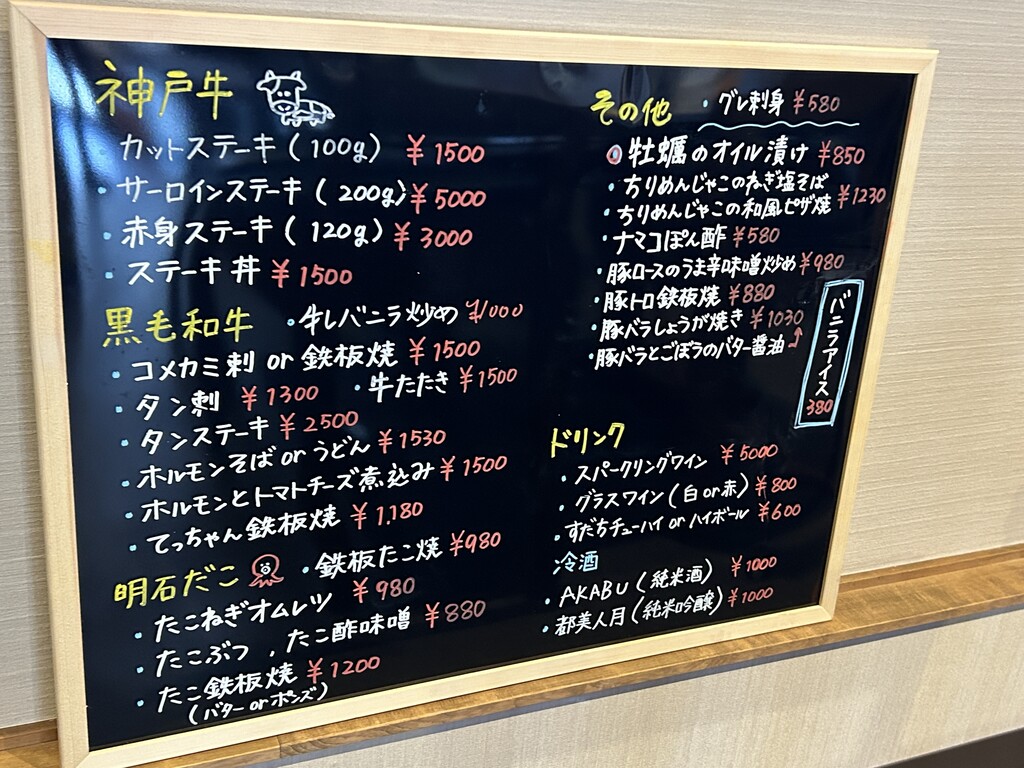 神戸牛
カットステーキ(100g) ¥1500
・サーロインステーキ(200g) ¥5000
・赤身ステーキ(120g) ¥3000
・ステーキ丼 ¥1500
黒毛和牛
・牛しバニラ炒め ¥1000
・コメカミ刺 or 鉄板焼 ¥1500
・タン刺 ¥1300
・牛たたき ¥1500
・タンステーキ ¥2500
・ホルモンそば or うどん ¥1530
・ホルモンとトマトチーズ煮込み ¥1500
・てっちゃん鉄板焼 ¥1,180
明石だこ
・鉄板たこ焼 ¥980
・たこねぎオムレツ ¥980
・たこぶつ、たこ酢味噌 ¥880
・たこ鉄板焼 ¥1200
(バター or ポンズ)
その他
・グレ刺身 ¥580
牡蠣のオイル漬け ¥850
・ちりめんじゃこのねぎ塩そば
・ちりめんじゃこの和風ピザ焼 ¥1230
・ナマコぽん酢 ¥580
・豚ロースのうま辛味噌炒め ¥980
・豚トロ鉄板焼 ¥880
・豚バラしょうが焼き ¥1030
・豚バラとごぼうのバター醤油
バニラアイス
380
ドリンク
・スパークリングワイン ¥5000
・グラスワイン(白 or 赤) ¥800
・すだちチューハイ or ハイボール ¥600
冷酒
・AKABU(純米酒) ¥1000
・都美人月(純米吟醸) ¥1000